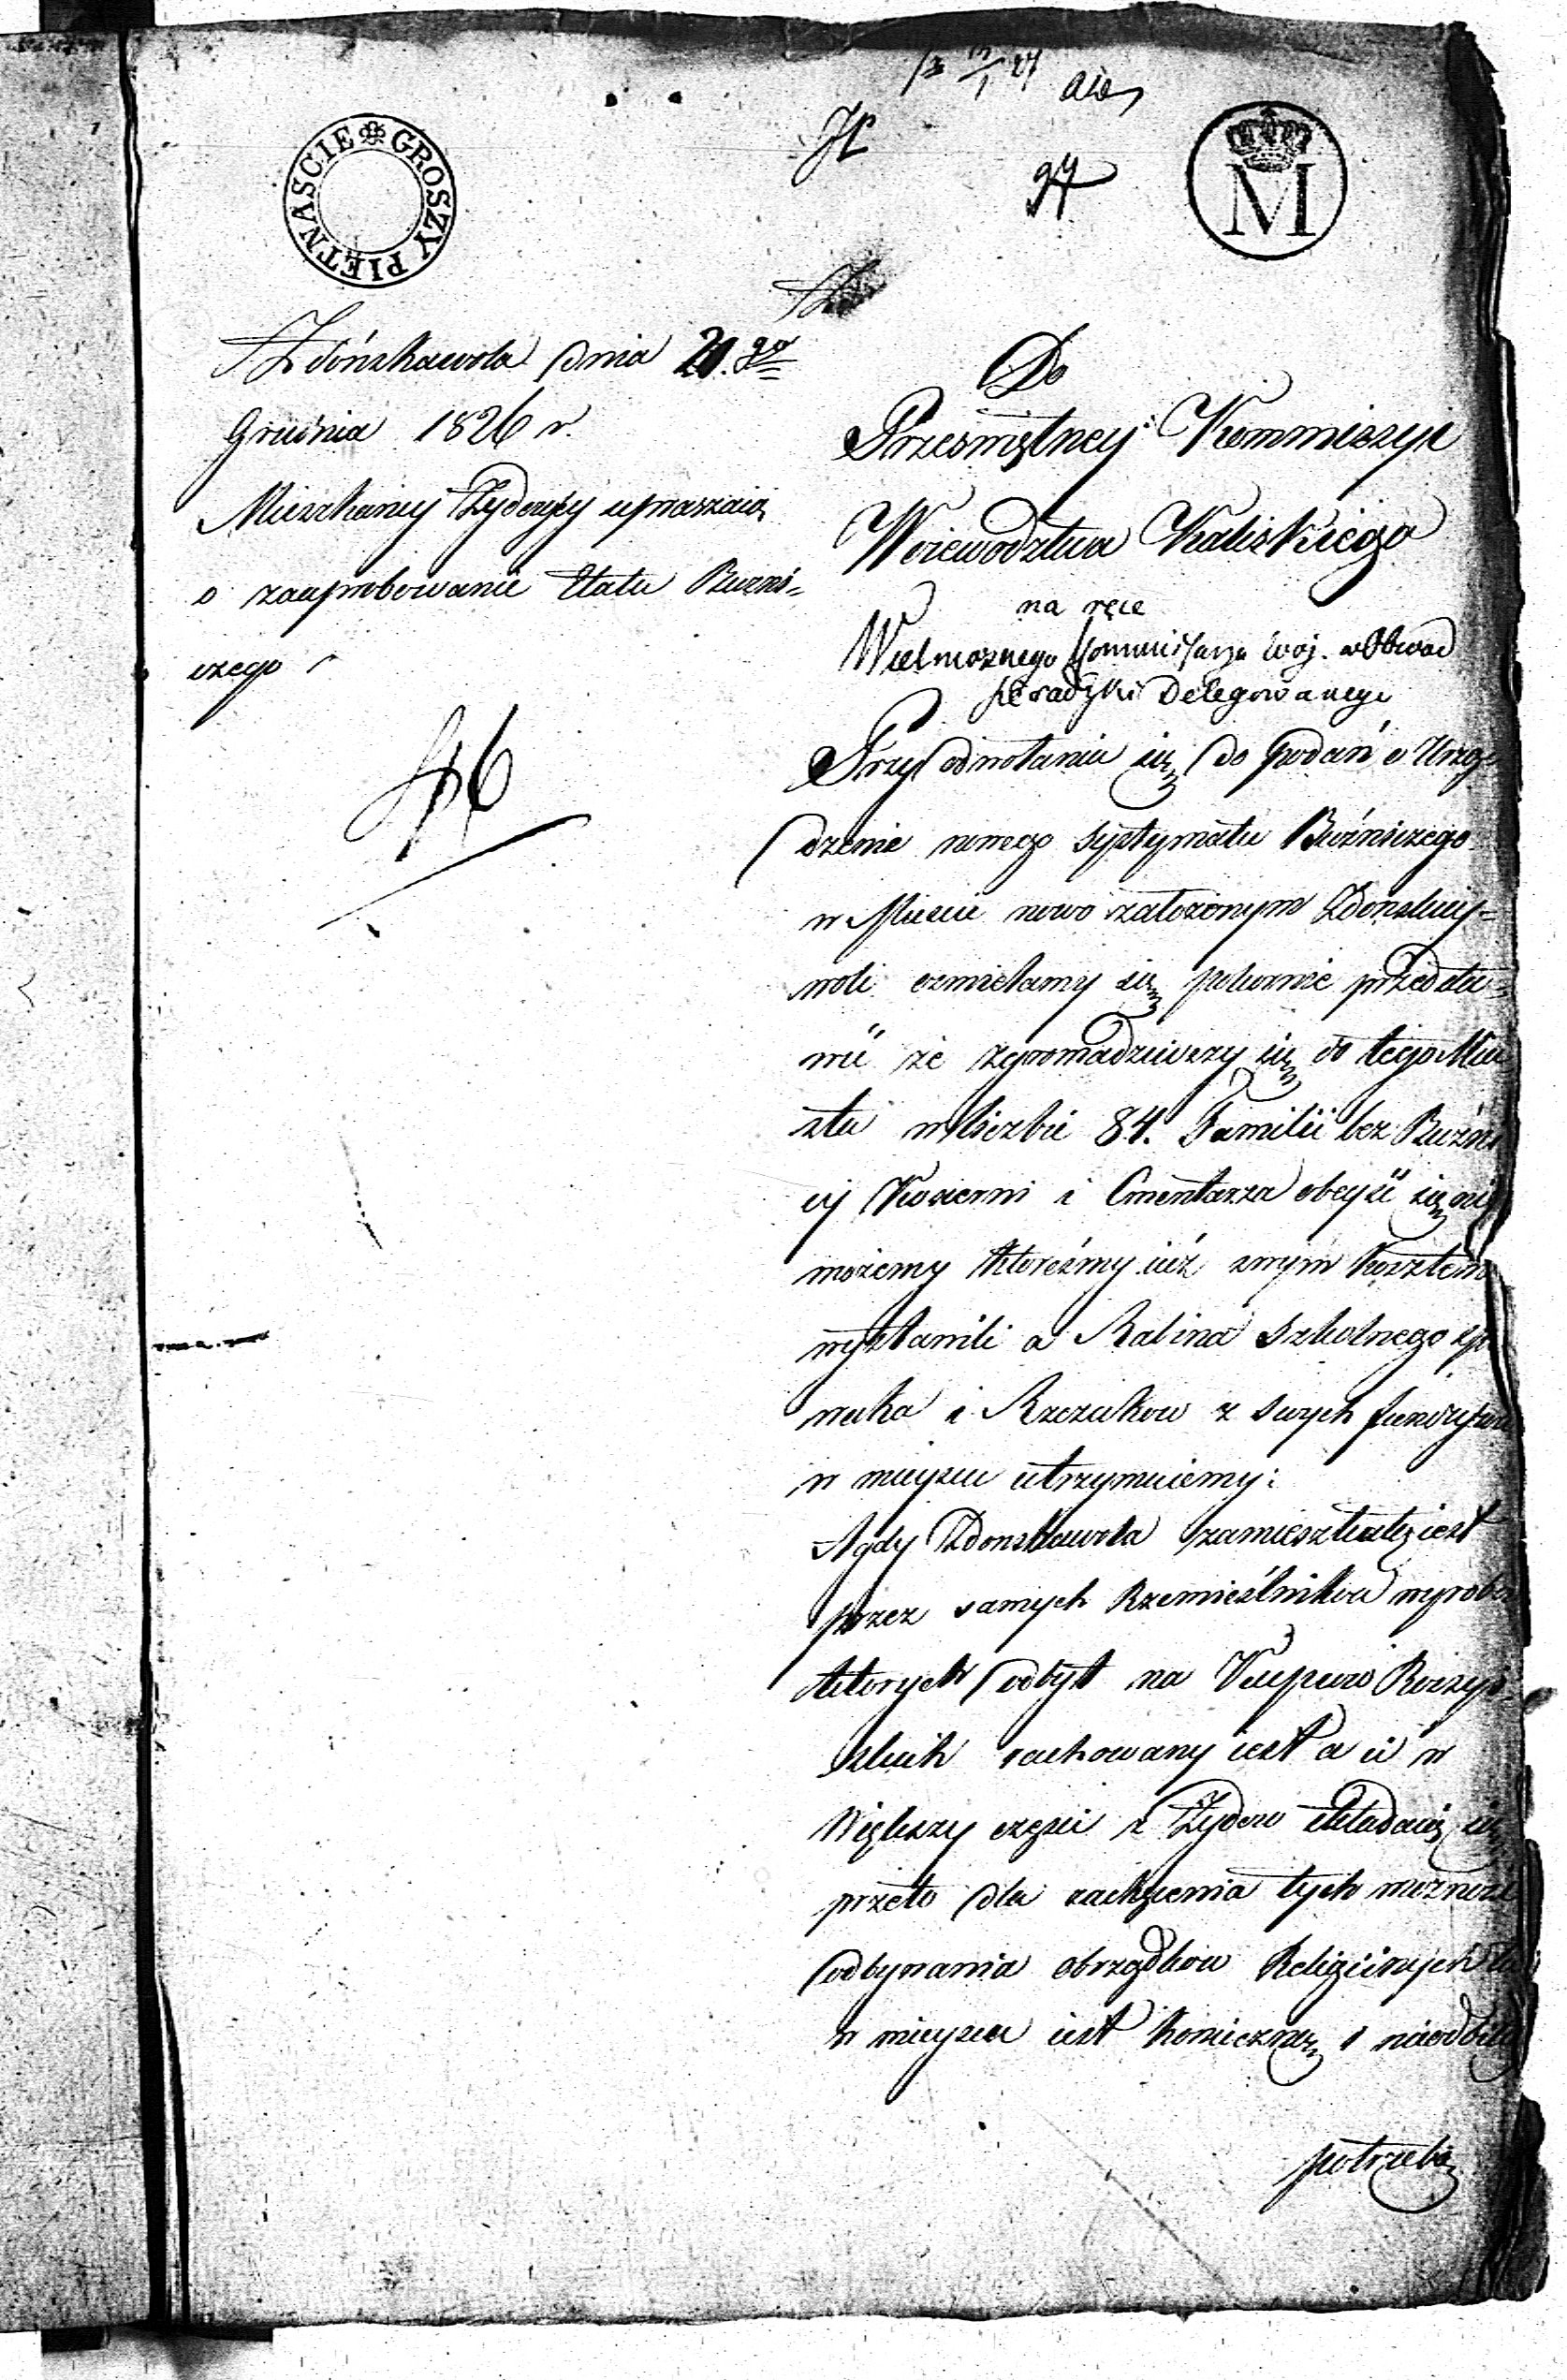 GROSZY PIĘTNASCIE
M
97
Zdóńskawola dnia 20.go
Grudnia 1826 r.
Mieszkańcy Żydowscy upraszaią
o zaaprobowanie Etatu Bużni=
czego
Do
Przeświętney Kommiszyi
Woiewodztwa Kaliskiego
na ręce
Wielmoznego Kommissarza Woj. w Obwod
Sieradzki Delegowanego
Przy odwołaniu się do Podań o Urzą=
dzenie nowego systymatu Bużniczego
w Miescie nowo założonym Zdonskiey=
woli ozmielamy się pokornie przedsta=
wić że zgromadziwszy się do tego Mia
sta w liczbie 84. Familii bez Bużni
cy Kosierni i Cmentarza obeyść się nie
możemy któreśmy iuż swym kosztem
wystawili a Rabina Szkolnego spie
waka i Rzezakow z swych funduszow
w mieyscu utrzymuiemy:
A gdy Zdonskawola zamieszkałą iest
przez samych Rzemieślnikow wyrobow
ktorych odbyt na Kupcow Rossyi=
skich rachowany iest a ci w
Większy części z Żydow składaią się
przeto dla zachęcenia tych możność
odbywania obrządkow Religiinych tu
w mieyscu iest konieczną i nieodbitą
potrzebą